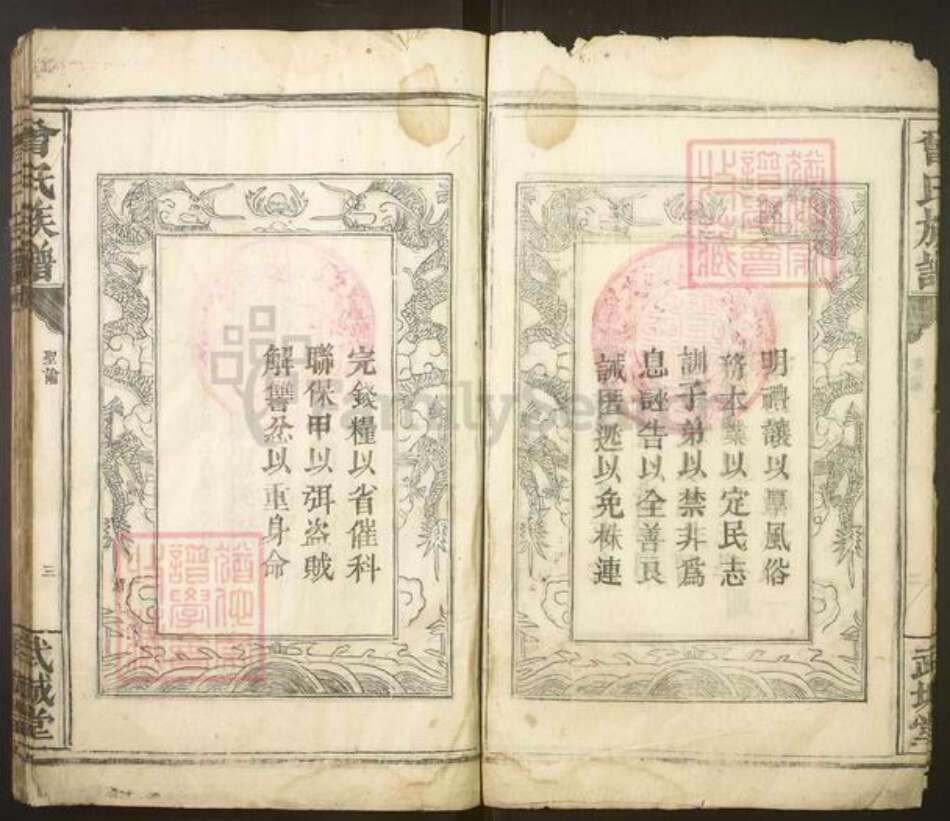 明禮讓以厚風俗
務本業以定民志
訓子弟以禁非為
息誣告以全善良
誡匿逃以免株連
完錢糧以省催科
聯保甲以弭盜賊
解讐忿以重身命
曾氏族譜
聖諭
三
武城堂
曾氏族譜
武城堂
FamilySearch